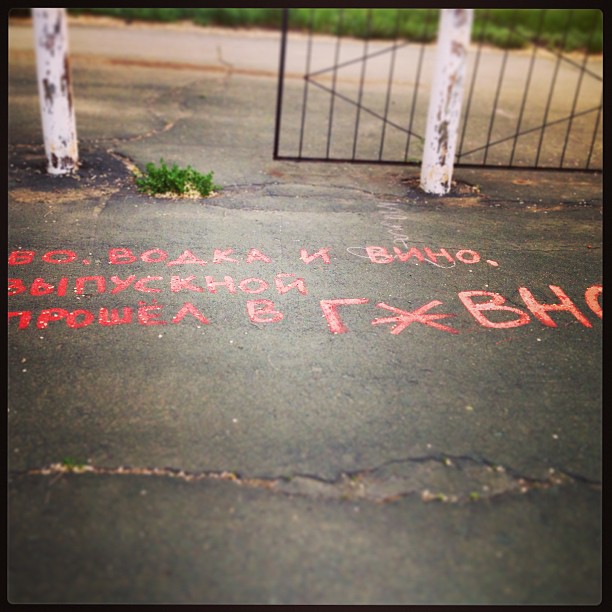 ВО. ВОДКА И ВИНО.
ВЫПУСКНОЙ
ПРОШЁЛ В Г*ВНО